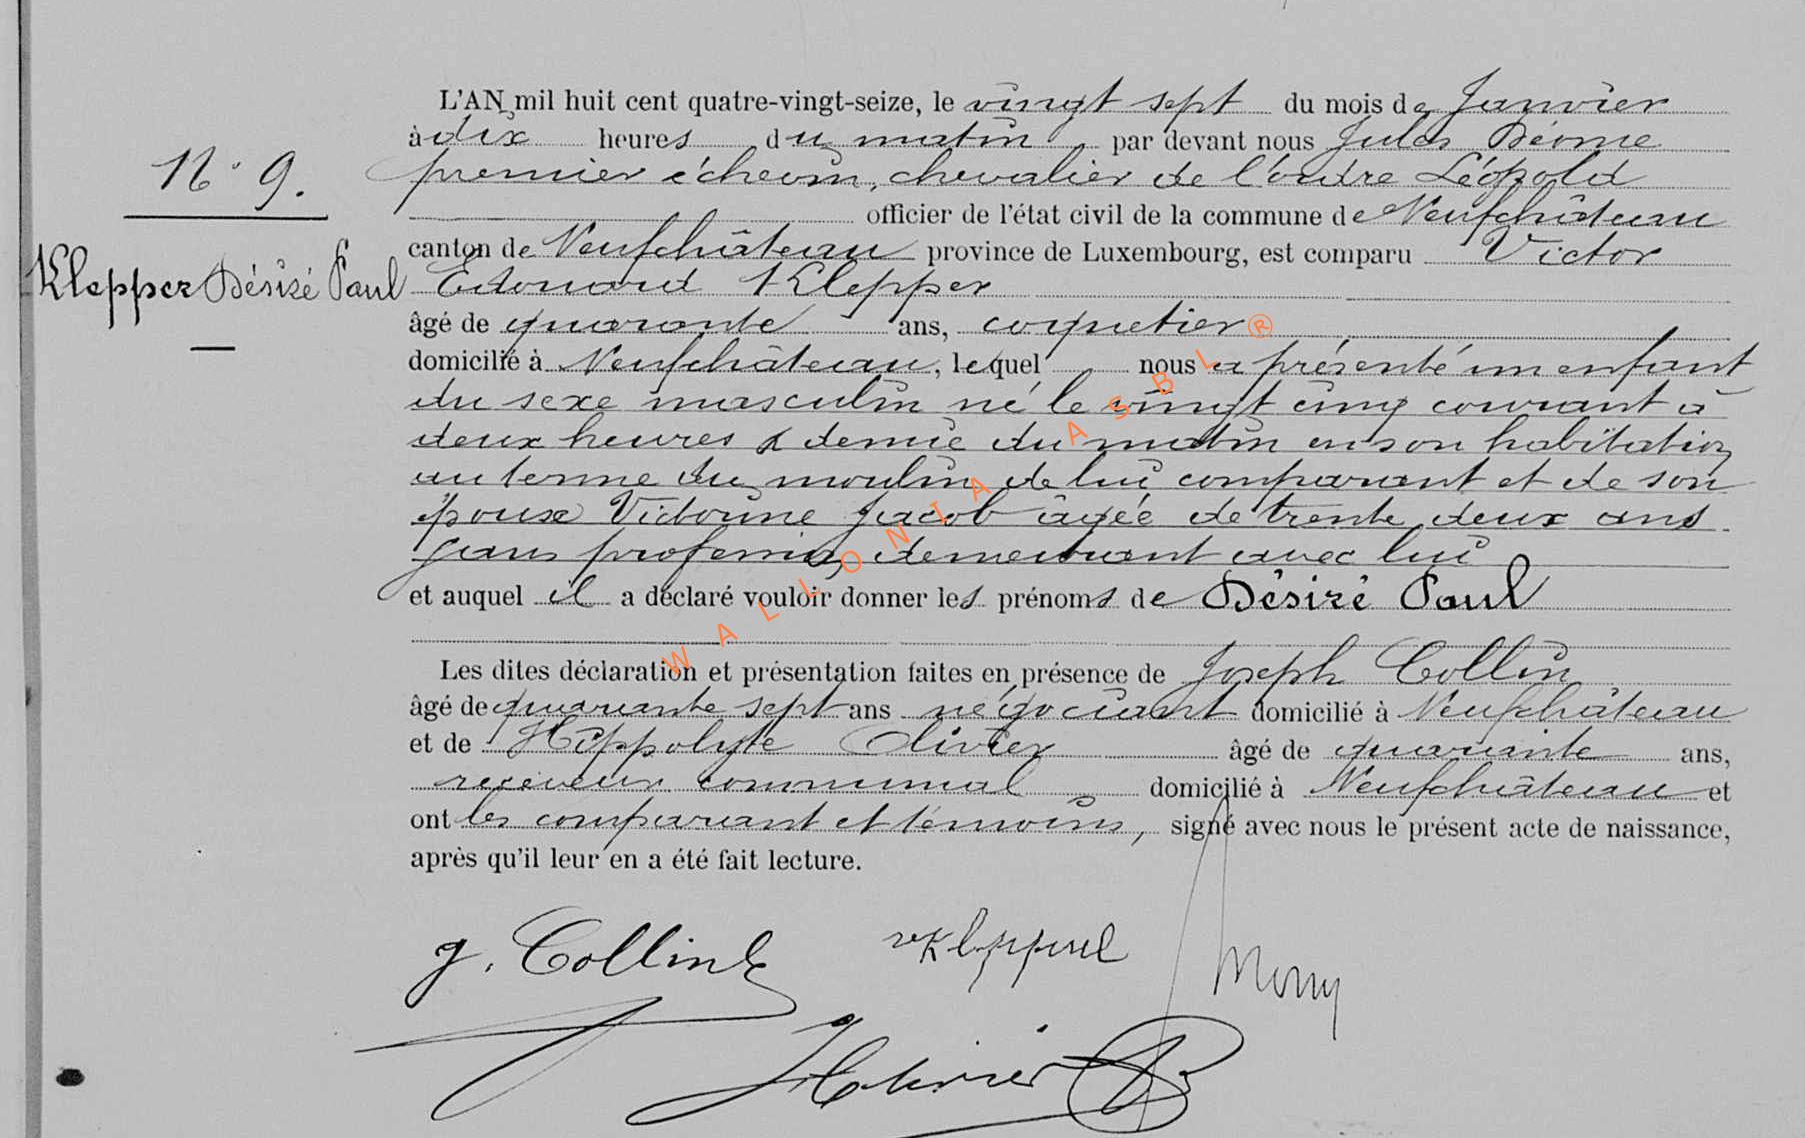 L'AN mil huit cent quatre-vingt-seize, le vingt sept du mois de Janvier
à dix heures du matin par devant nous Jules
N° 9.
premier échevin, chevalier de l'ordre Léopold
officier de l'état civil de la commune de Neufchâteau
canton de Neufchâteau province de Luxembourg, est comparu Victor
Klepper Désiré Paul
Edouard Klepper
âgé de quarante ans, coquetier
domicilié à Neufchâteau, lequel nous a présenté un enfant
du sexe masculin né le vingt cinq courant à
deux heures & demie du matin en son habitation
au terme du moulin de lui comparant et de son
épouse Victorine Jacob âgée de trente deux ans
sans profession demeurant avec lui
et auquel il a déclaré vouloir donner les prénoms de Désiré Paul
Les dites déclaration et présentation faites en présence de Joseph Collin
âgé de quarante sept ans négociant domicilié à Neufchâteau
et de Hippolyte Olivier âgé de quarante ans,
receveur communal domicilié à Neufchâteau et
ont les comparant et témoins, signé avec nous le présent acte de naissance,
après qu'il leur en a été fait lecture.
J. Collin
HOlivier
WALLONIA ASBL ®